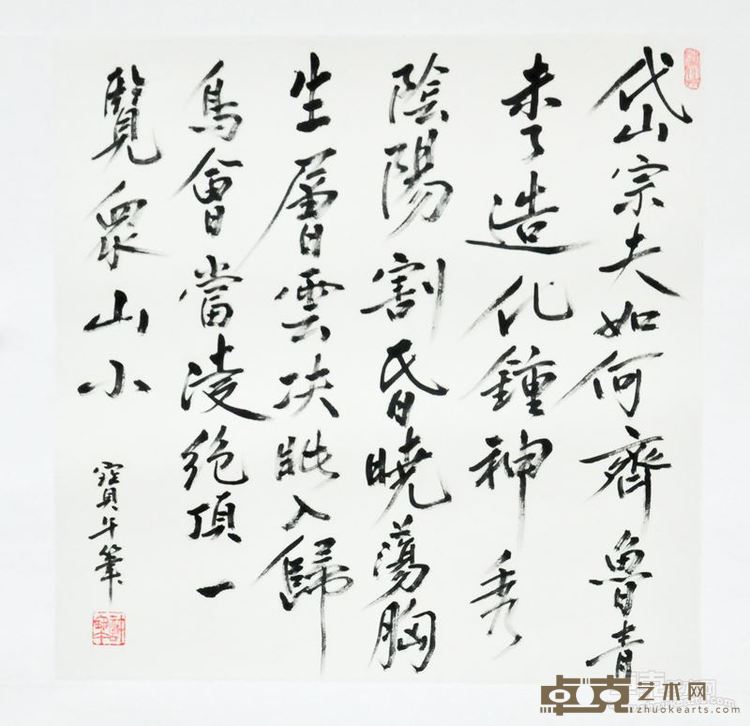 岱山宗夫如何齊魯青
未了造化鍾神秀
陰陽割昏曉蕩胸
生層雲决眥入歸
鳥會當凌絶頂一
覽衆山小
寳午筆
卓克艺术网
zhuokearts.com